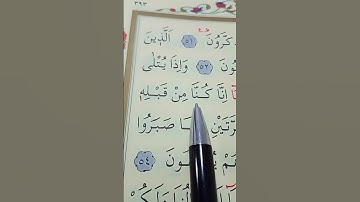 ٣٩٣
ذَكَّرُونَ ﴿٥١﴾ اَلَّذ۪ينَ
ونَ ﴿٥٢﴾ وَاِذَا يُتْلٰى
اِنَّا كُنَّا مِنْ قَبْلِه۪
رَّتَيْنِ صَبَرُوا
ونَ ﴿٥٤﴾